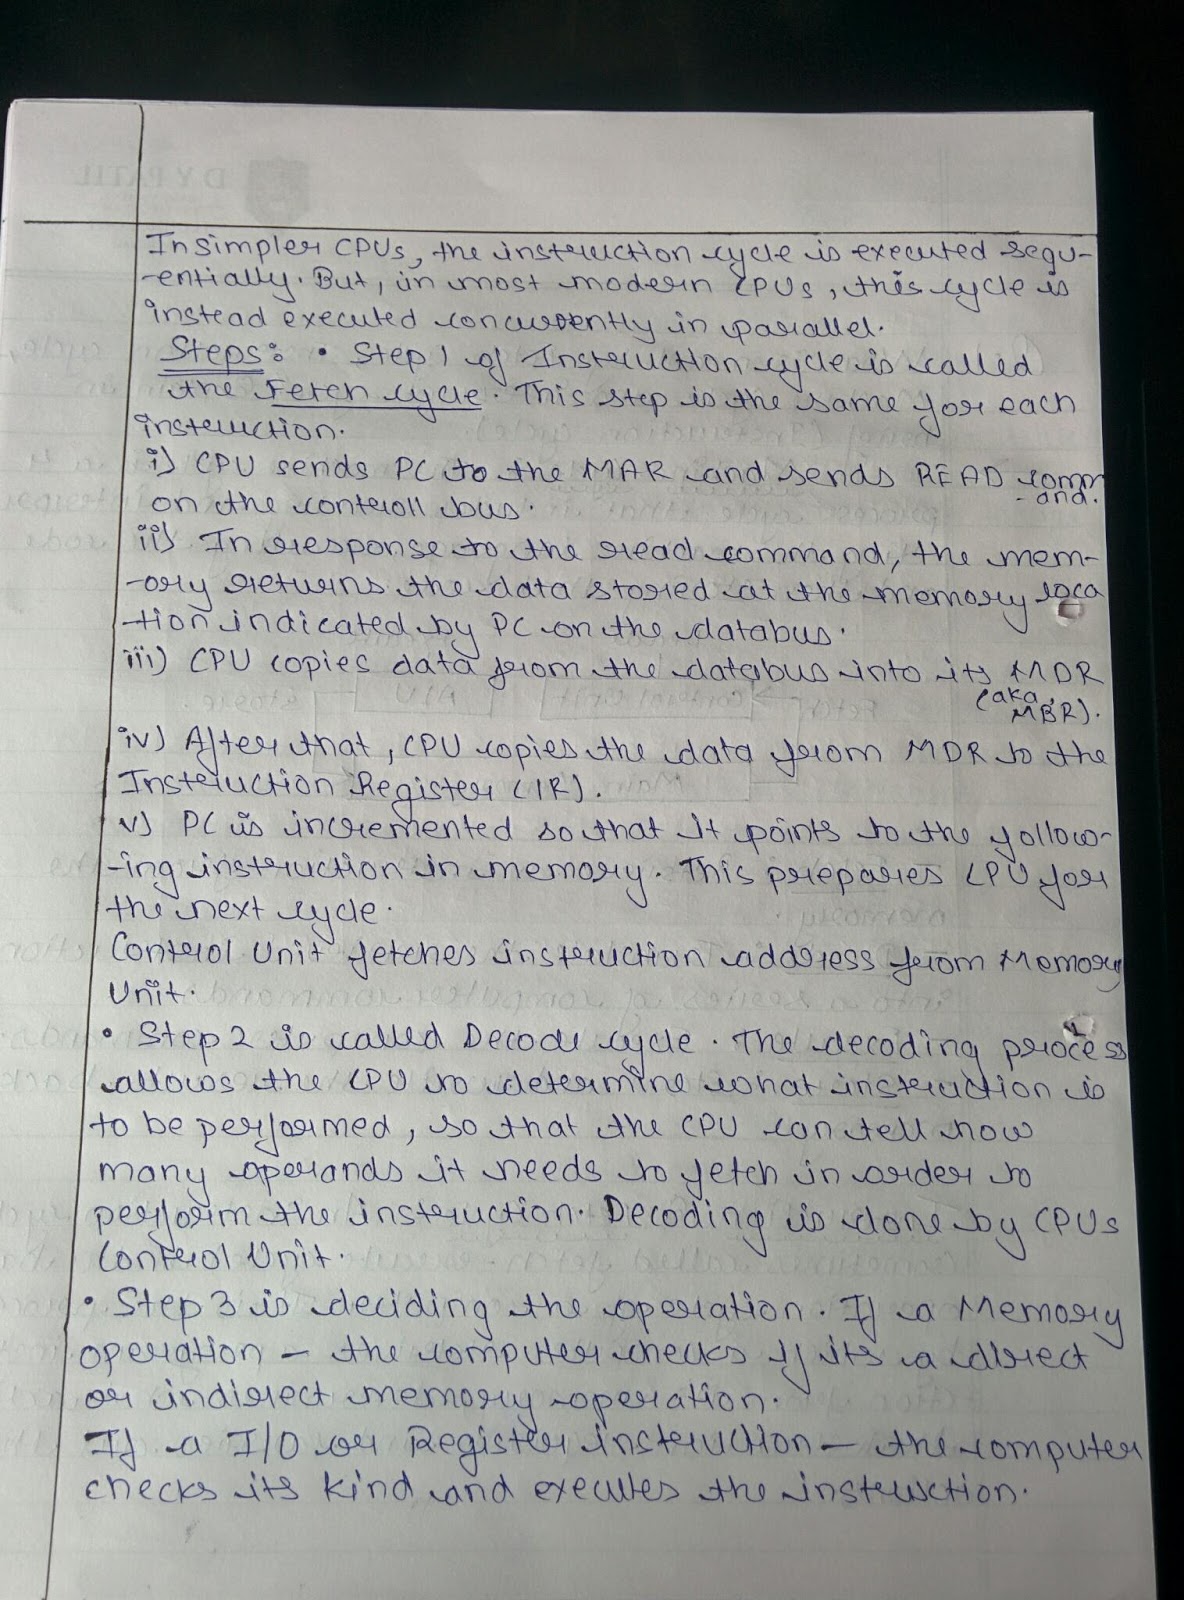 D Y PATIL
In simpler CPUs, the instruction cycle is executed sequ-
-entially. But, in most modern CPUs, this cycle is
instead executed concurrently in parallel.
Steps: • Step 1 of Instruction cycle is called
the Fetch cycle. This step is the same for each
instruction.
i) CPU sends PC to the MAR and sends READ comm
-and.
on the controll bus.
ii) In response to the read command, the mem-
-ory returns the data stored at the memory loca
-tion indicated by PC on the databus.
iii) CPU copies data from the databus into its MDR
(aka MBR).
iv) After that, CPU copies the data from MDR to the
Instruction Register (IR).
v) PC is incremented so that it points to the follow-
-ing instruction in memory. This prepares CPU for
the next cycle.
Control Unit fetches instruction address from Memory
Unit.
• Step 2 is called Decode cycle. The decoding process
allows the CPU to determine what instruction is
to be performed, so that the CPU can tell how
many operands it needs to fetch in order to
perform the instruction. Decoding is done by CPUs
Control Unit.
• Step 3 is deciding the operation. If a Memory
operation – the computer checks if its a direct
or indirect memory operation.
If a I/O or Register instruction – the computer
checks its kind and executes the instruction.